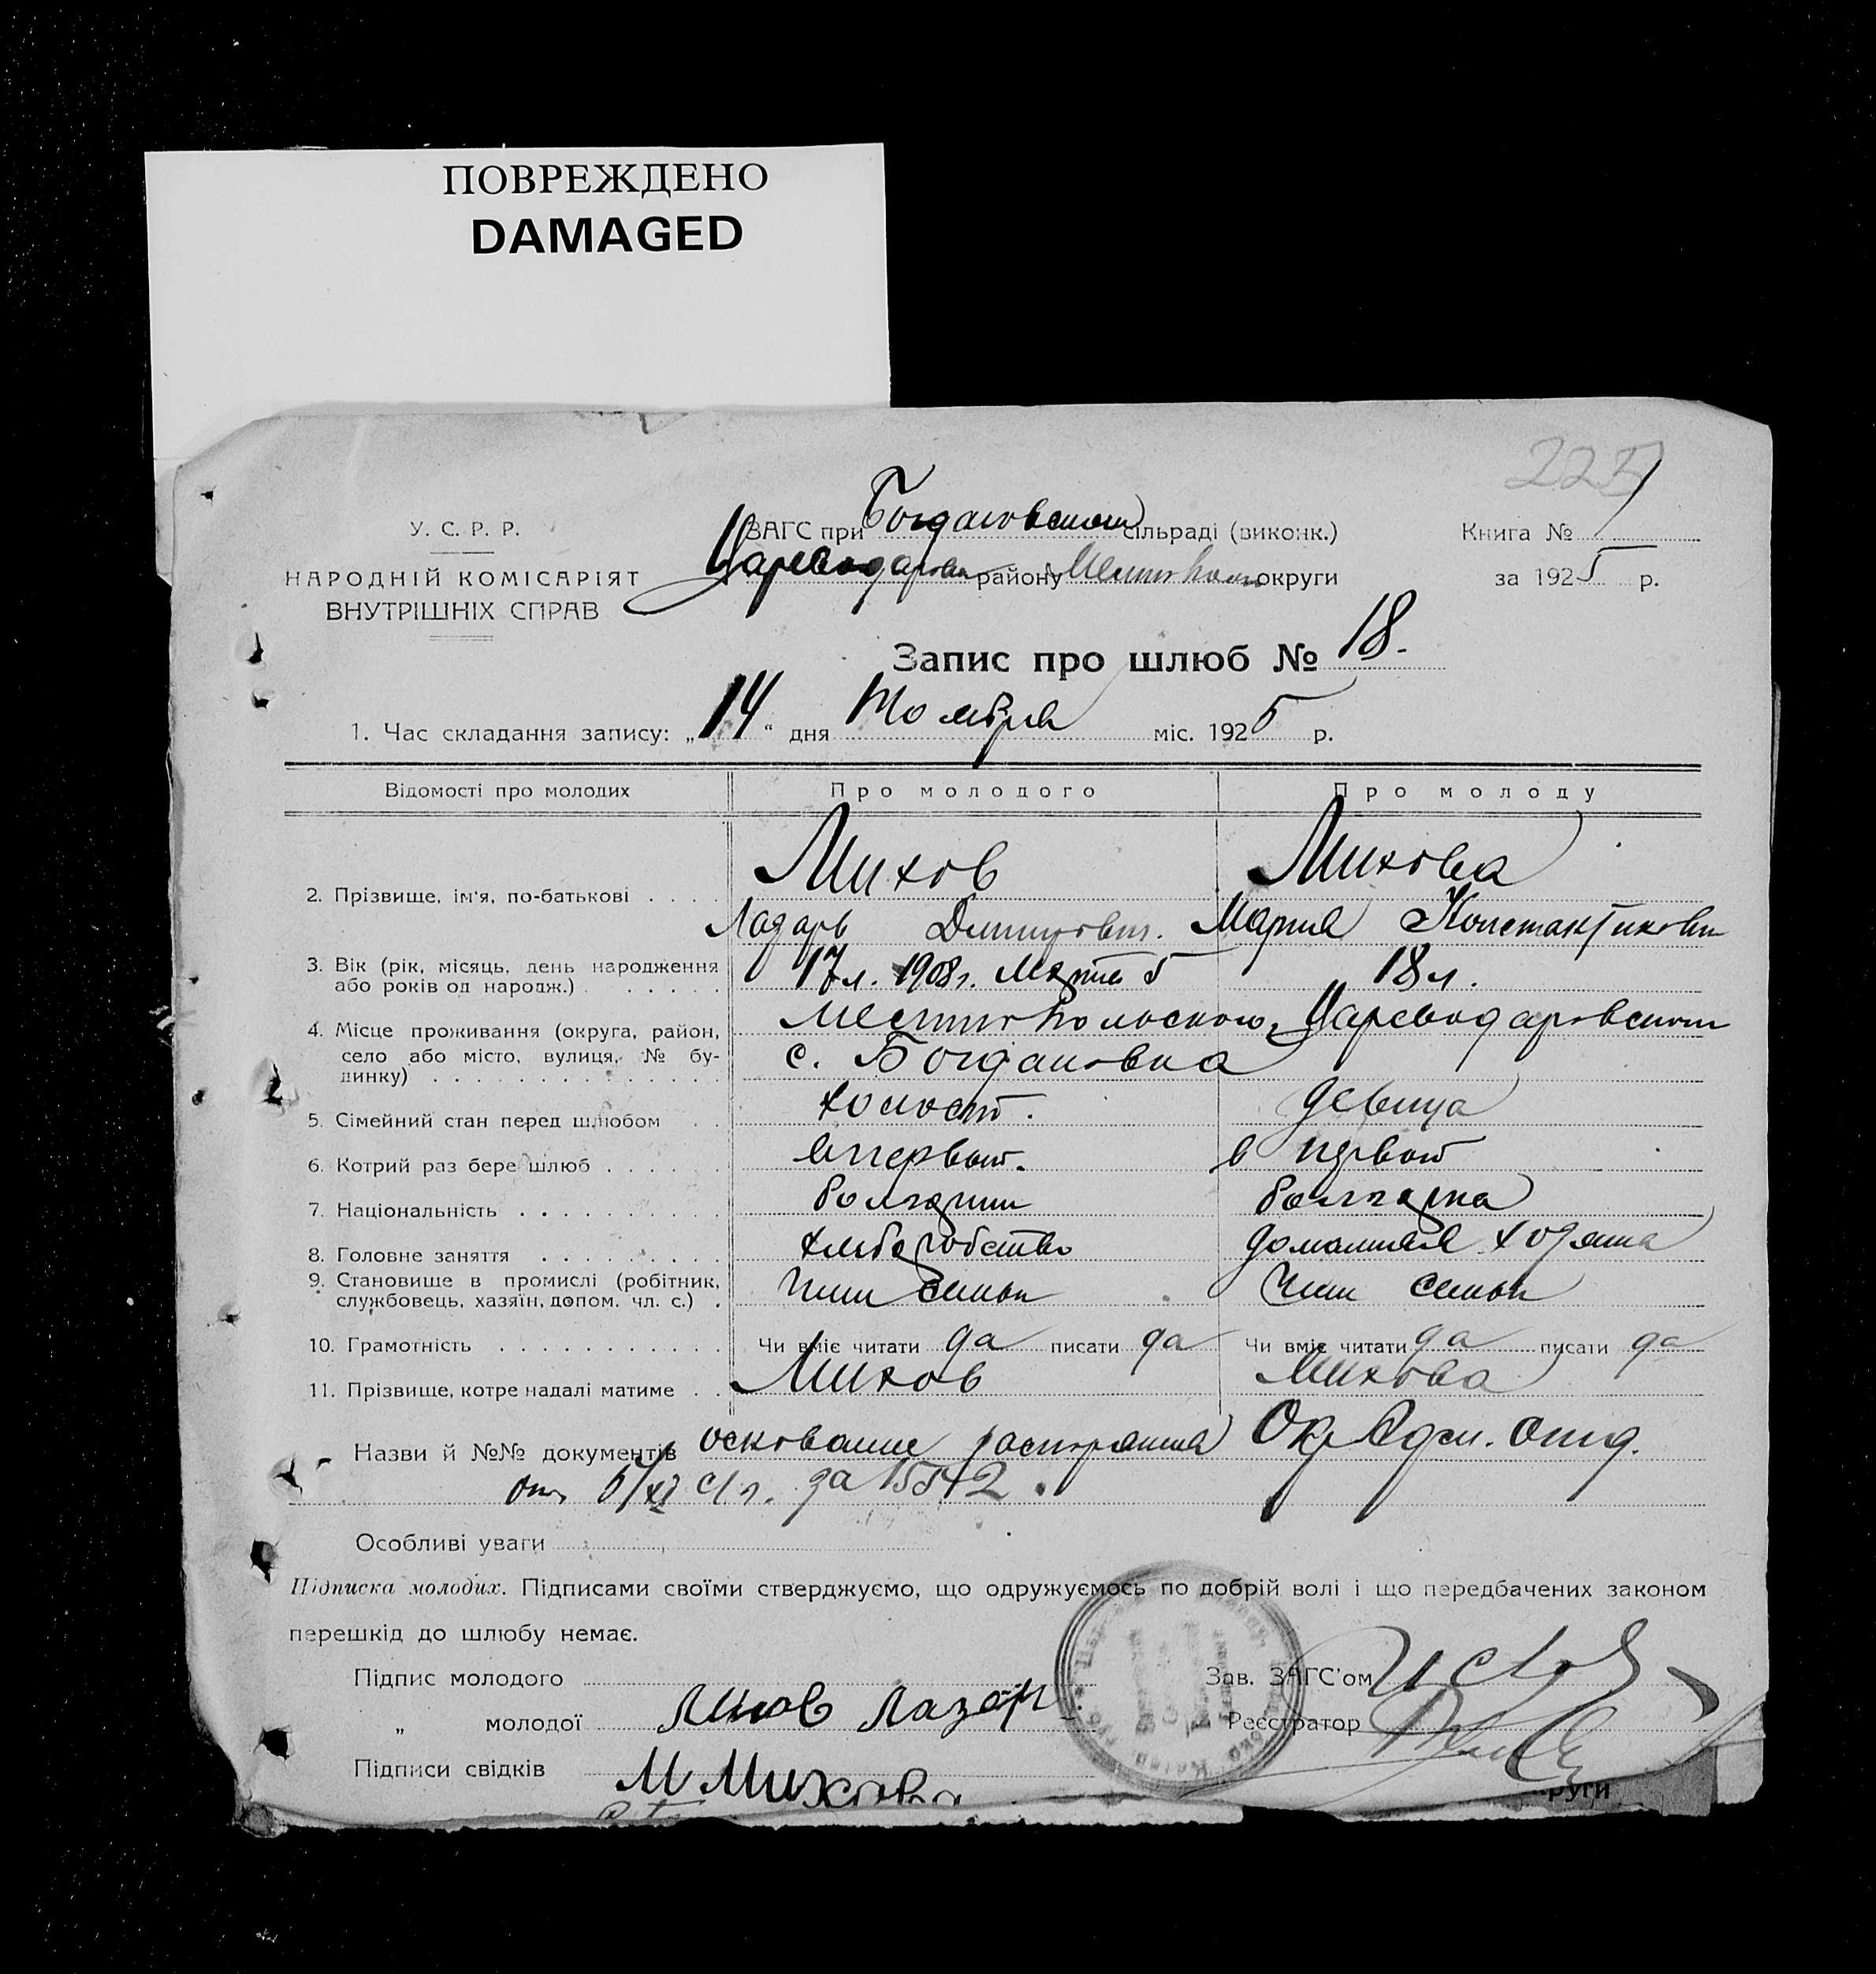 ПОВРЕЖДЕНО
DAMAGED
225
У. С. Р. Р.
НАРОДНІЙ КОМІСАРІЯТ
ВНУТРІШНІХ СПРАВ
ЗАГС при Богдановском сільраді (виконк.)
Цареводаров району Мелитопол округи
Книга № 1
за 1925 р.
Запис про шлюб № 18.
1. Час складання запису: „14" дня Ноября міс. 1925 р.
Відомості про молодих Про молодого Про молоду
2. Прізвище, ім'я, по-батькові . . . . Михов Михова
Лазарь Дмитрович. Мария Константиновн
3. Вік (рік, місяць, день народження або років од народж.) . . . . . . 17 л. 1908 г. Марта 5 18 л.
4. Місце проживання (округа, район, село або місто, вулиця, № будинку) . . . Мелитопольского, Цареводаровском
с. Богдановка
5. Сімейний стан перед шлюбом . . холост. девица
6. Котрий раз бере шлюб . . . . . . впервой. в первой
7. Національність . . . . . . . . . . болгарин болгарка
8. Головне заняття . . . . . . . . . хлебороботво домашняя хозяика
9. Становище в промислі (робітник, службовець, хазяїн, допом. чл. с.) . член семьи член семьи
10. Грамотність . . . . . . . . . . . Чи вміє читати да писати да Чи вміє читати да писати да
11. Прізвище, котре надалі матиме . . Михов Михова
Назви й №№ документів основание распоряжения Окр Адм. отд.
от 6/XI с/г. за 15542.
Особливі уваги
Підписка молодих. Підписами своїми стверджуємо, що одружуємось по добрій волі і що передбачених законом
перешкід до шлюбу немає.
Підпис молодого Зав. ЗАГС'ом
„ молодої Михов Лазарь Реєстратор
Підписи свідків М Михова
руги